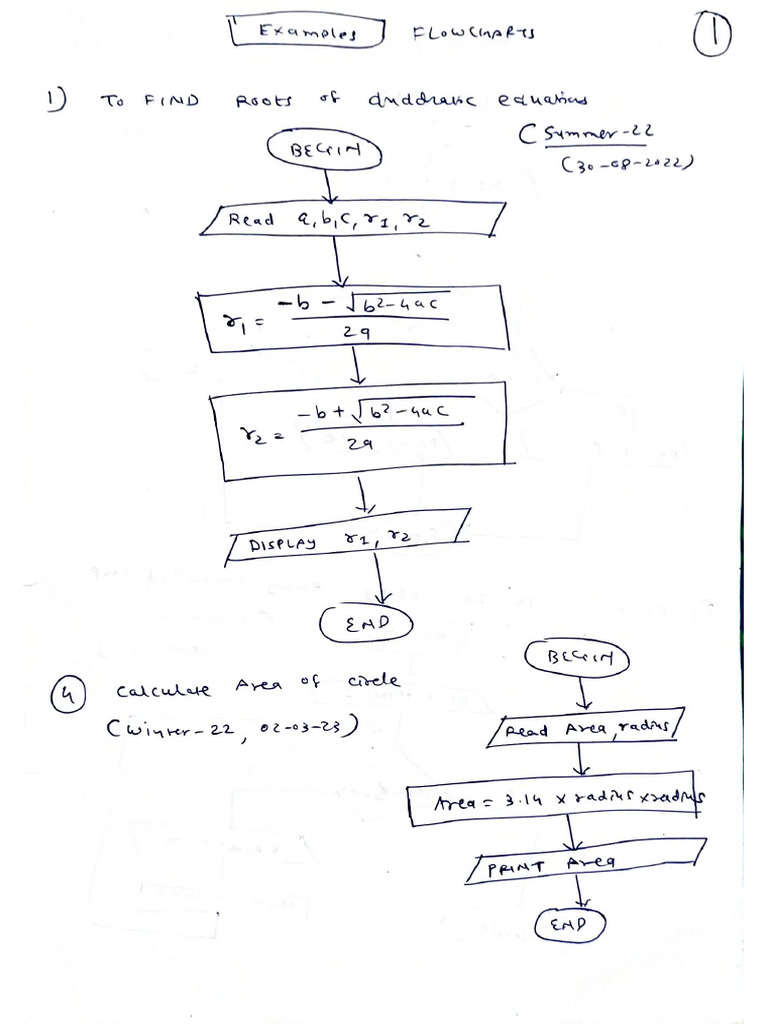 Examples FLOWCHARTS
1
1) TO FIND Roots of quadratic equations
(Summer-22
(30-08-2022)
BEGIN
Read a,b,c,r1,r2
r1 = -b - √b2-4ac
2a
r2 = -b + √b2-4ac
2a
DISPLAY r1, r2
END
4 Calculate Area of circle
(Winter-22, 02-03-23)
BEGIN
Read Area, radius
Area = 3.14 x radius x radius
PRINT Area
END